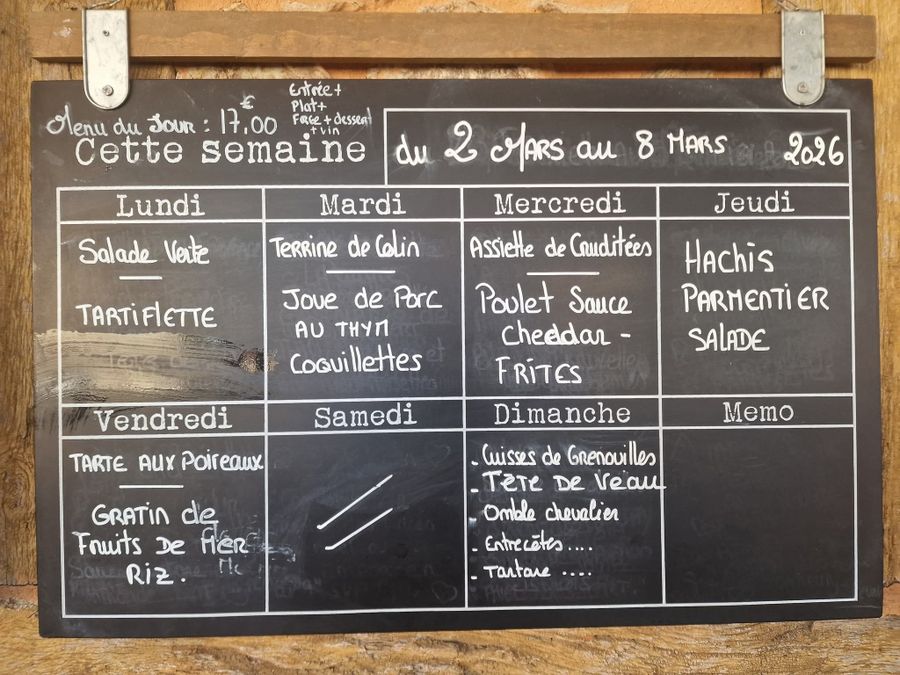 Menu du Jour : 17.00 €
Entrée +
Plat +
Frge + dessert
+ vin
Cette semaine
du 2 Mars au 8 Mars 2026
Lundi
Salade Verte
TARTIFLETTE
Mardi
Terrine de Colin
Joue de Porc
AU THYM
Coquillettes
Mercredi
Assiette de Crudités
Poulet Sauce
Cheddar -
FRITES
Jeudi
HACHIS
PARMENTIER
SALADE
Vendredi
TARTE AUX Poireaux
GRATIN de
Fruits DE MER
RIZ.
Samedi
Dimanche
- Cuisses de Grenouilles
- TÊTE DE Veau
- Omble chevalier
- Entrecôtes ....
- Tartare ....
Memo